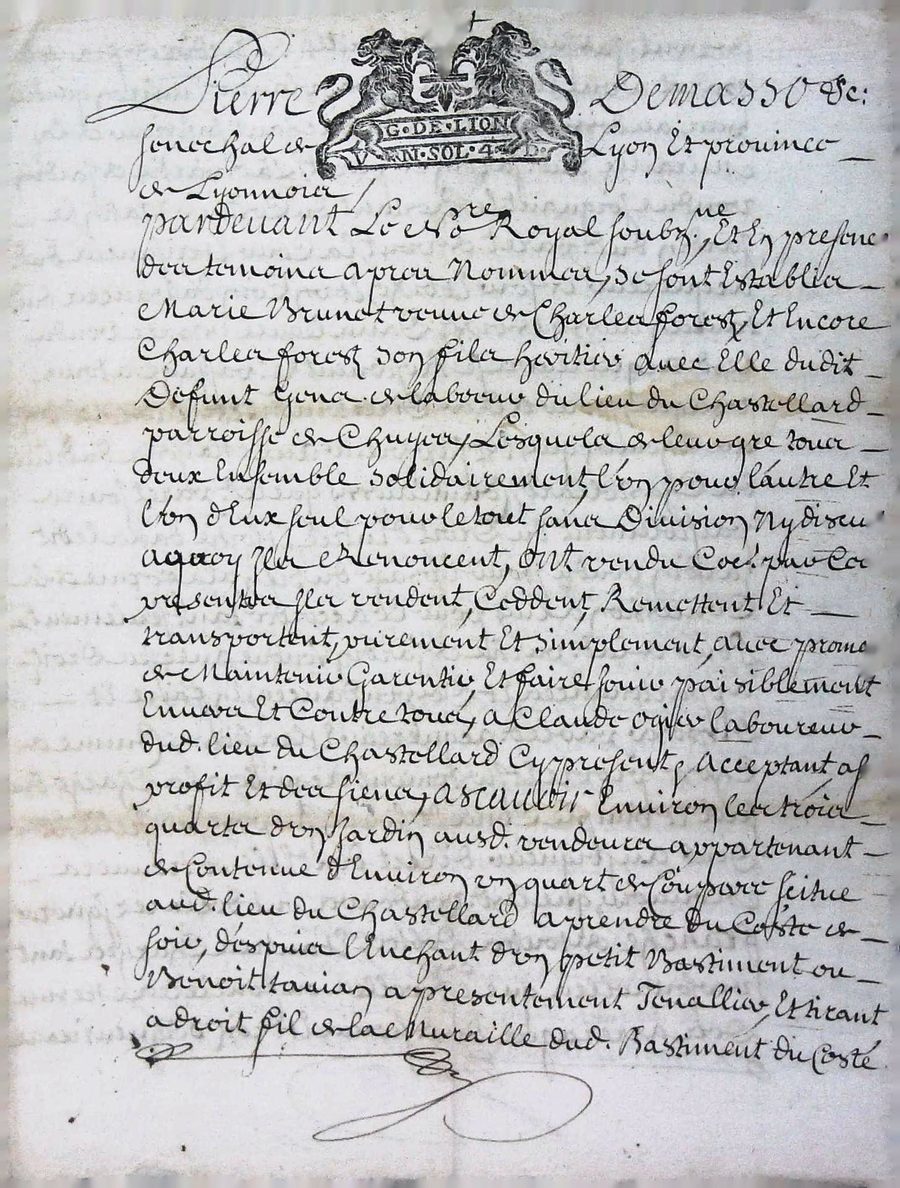 Pierre Demasso &c:
G·DE·LION
V N·SOL·4·D·
senechal de Lyon Et province
de Lyonnois /
pardevant Le No.re Royal soubz.né, Et En presence
des temoins apres Nommes, se sont Establies
Marie Brunet veuve de Charles forest, Et Encore
Charles forest son fils heritier avec Elle dudit
Defunt Gens de labœur du lieu du Chastellard
parroisse de Chuyes, Lesquels de leur gre tous
deux Ensemble solidairement l'un pour l'autre Et
l'un d'Eux seul pour le tout sans Division Ny discu
aquoy Ils Renoncent, ONT vendu Coe. par Ces
presentes Ils vendent, Ceddent, Remettent Et
transportent, purement Et simplement, avec prome
de Maintenir Garentir, Et faire jouir paisiblement
Envers Et Contre tous, a Claude ogier laboureur
dud. lieu du Chastellard Cy present, Acceptant, as
profit Et des siens, ascavoir Environ les trois
quarts d'un Jardin ausd. vendeurs appartenant
de Contenue d'Environ un quart de Couppee scitue
aud. lieu du Chastellard a prendre du Costé de
soir, despuis l'Enchant d'un petit Bastiment ou
Benoit tavian a presentement Tenallier, Et tirant
a droit fil de la Muraille dud. Bastiment du Costé